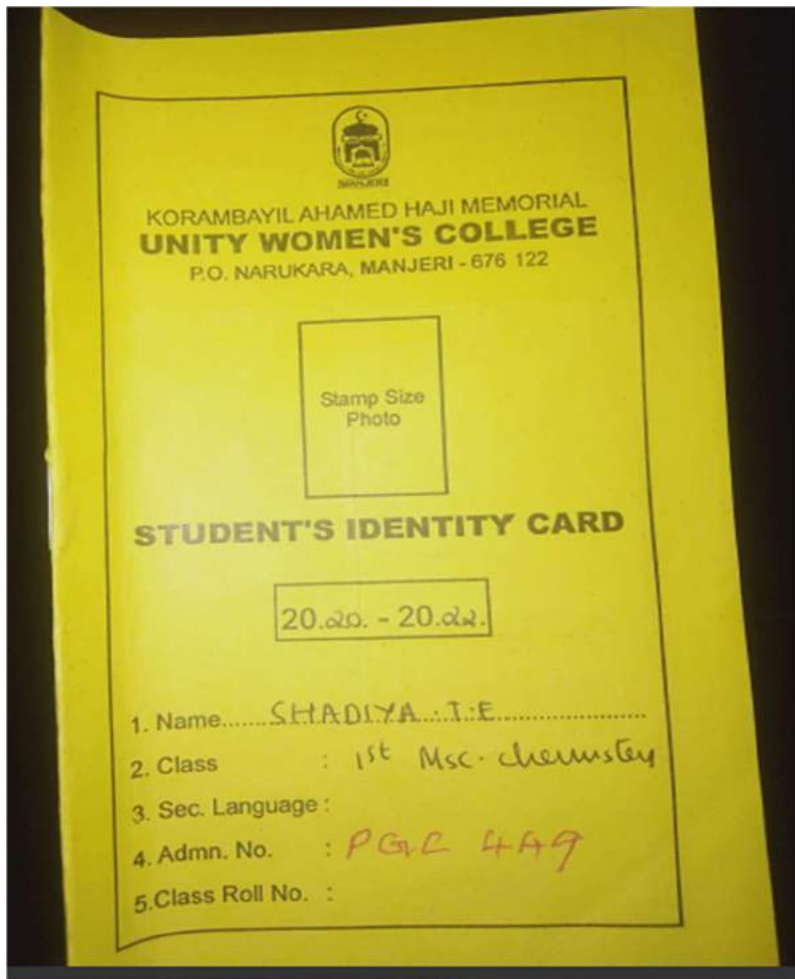 MANJERI
KORAMBAYIL AHAMED HAJI MEMORIAL
UNITY WOMEN'S COLLEGE
P.O. NARUKARA, MANJERI - 676 122
Stamp Size
Photo
STUDENT'S IDENTITY CARD
20.20. - 20.22.
1. Name.......SHADIYA.T.E......................
2. Class : 1st Msc. chemistry
3. Sec. Language :
4. Admn. No. : PGC 449
5.Class Roll No. :